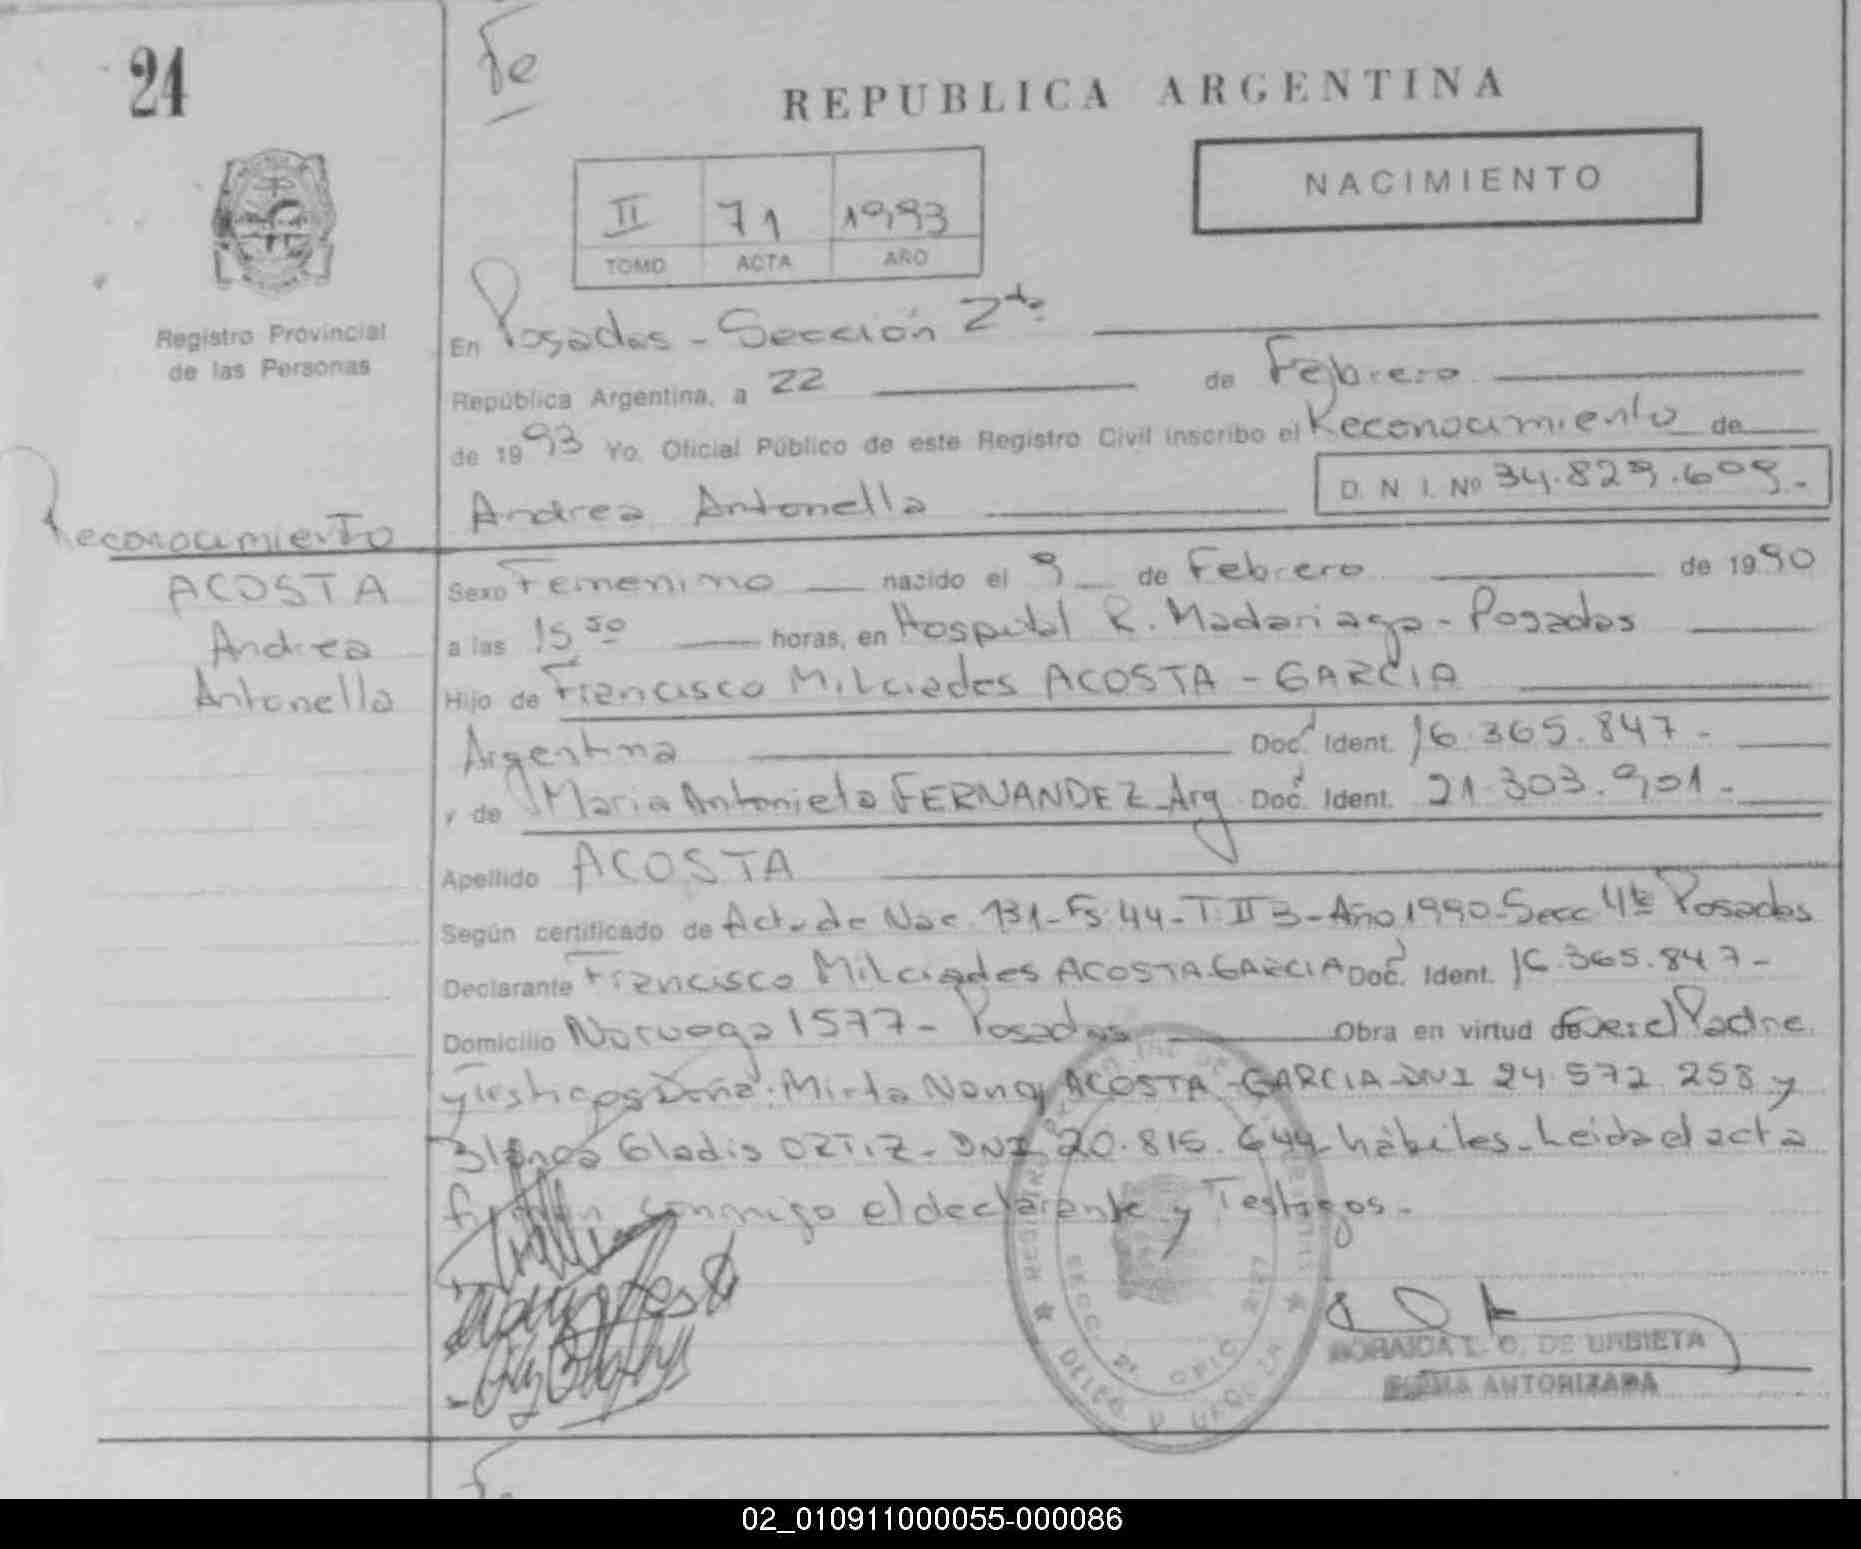 24
Fe
REPUBLICA ARGENTINA
NACIMIENTO
II 71 1993
TOMO ACTA AÑO
Registro Provincial
de las Personas
En Posadas - Sección 2da
República Argentina, a 22 de Febrero
de 1993 Yo, Oficial Público de este Registro Civil inscribo el Reconocimiento de
Andrea Antonella D. N. I. Nº 34.829.609.-
Reconocimiento
ACOSTA
Andrea
Antonella
Sexo Femenino nacido el 9 de Febrero de 1990
a las 15 50 horas, en Hospital R. Madariaga - Posadas
Hijo de Francisco Milciades ACOSTA - GARCIA
Argentina Doc. Ident. 16.365.847.-
y de Maria Antonieta FERNANDEZ Arg Doc. Ident. 21.303.901.-
Apellido ACOSTA
Según certificado de Acta de Nac. 131 - Fs 44 - T. II B - Año 1990 - Secc 4ta Posadas
Declarante Francisco Milciades ACOSTA-GARCIA Doc. Ident. 16.365.847-
Domicilio Noruega 1577 - Posadas Obra en virtud de ser el Padre
y Testigos Doña: Mirta Nancy ACOSTA-GARCIA-DNI 24.572.258 y
Blanca Gladis ORTIZ - DNI 20.815.644 hábiles - Leida el acta
firman conmigo el declarante y Testigos.-
DE URBIETA
FIRMA AUTORIZADA
02_010911000055-000086